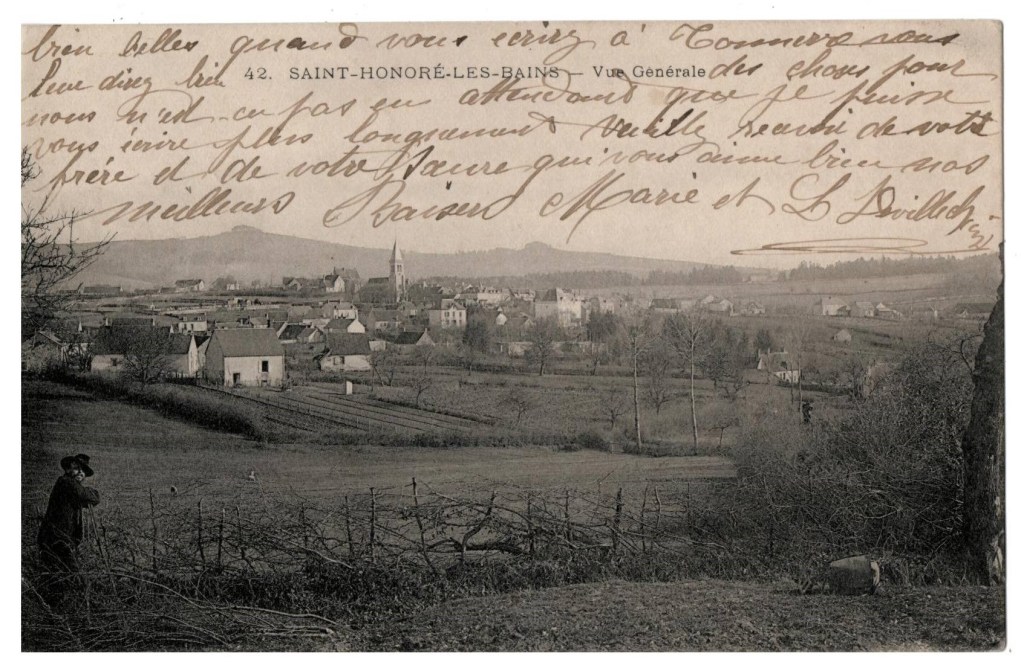 bien belles quand vous ecrirez à Tonnerre vous
leur direz bien des choses pour
42. SAINT-HONORÉ-LES-BAINS — Vue Générale
nous n'est-ce pas en attendand que je puisse
vous écrire plus longuement Veuillez recevoir de votre
frère et de votre Saure qui vous aime bien nos
meilleurs Baisers Marie et L